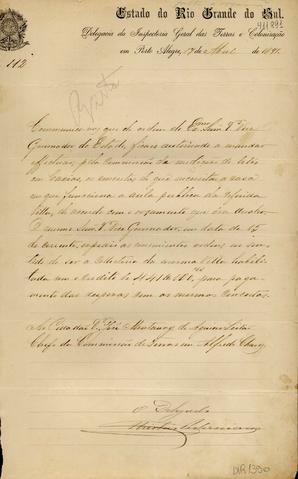 Estado do Rio Grande do Sul.
Delegacia da Inspectoria Geral das Terras e Colonização
em Porto Alegre, 17 de Abril de 1891.
112
Communico-vos que de ordem do Exmo Snr. Vice
Governador do Estado, ficaes autorisado a mandar
effectuar, pela Commissão de medição de lotes
os concertos de que necessita a casa
em que funcciona a aula publica da referida
Villa, de accordo com o orçamento que
O mesmo Snr. Vice Governador, em data de 15
do corrente, expedio as convenientes ordens no sen-
tido de ser a da mesma Villa habili-
tada com o credito de 441$000 para paga-
mento das despezas com os mesmos concertos.
Ao Cidadão José Montaury de Aguiar Leitão
Chefe da Commissão de Terras em Alfredo Chaves
O Delegado
DIR 1390